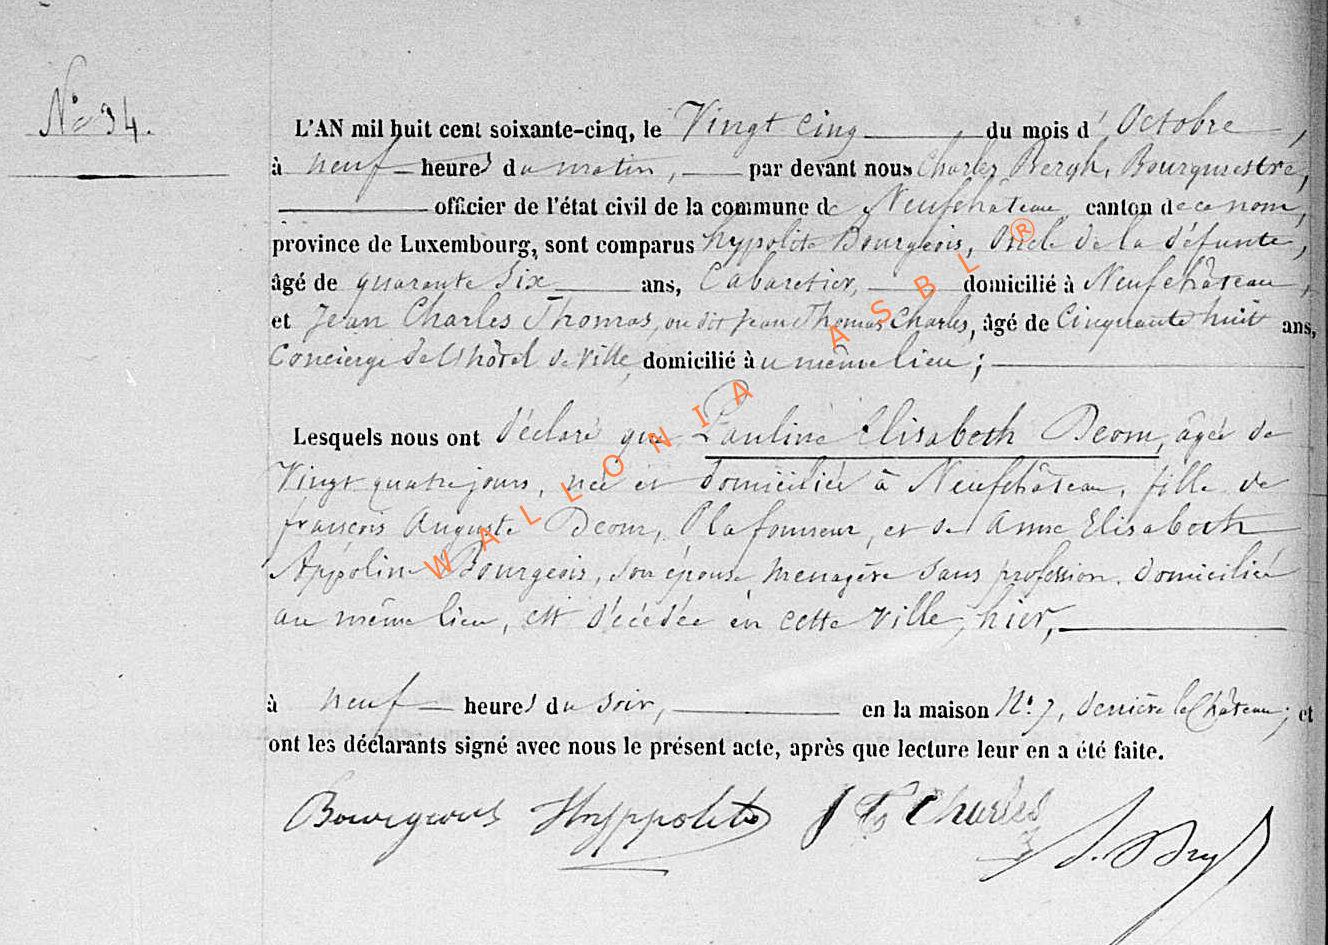 N° 34.
L'AN mil huit cent soixante-cinq, le Vingt cinq du mois d'Octobre,
à neuf heures du matin, par devant nous Charles Bergh, Bourgmestre,
officier de l'état civil de la commune de Neufchâteau canton de ce nom,
province de Luxembourg, sont comparus hyppolite Bourgeois, Oncle de la défunte,
âgé de quarante Six ans, Cabaretier, domicilié à Neufchâteau,
et Jean Charles Thomas, ou dit Jean Thomas Charles, âgé de Cinquante huit ans,
Concierge de l'hôtel de Ville, domicilié au même lieu;
Lesquels nous ont déclaré que Pauline Elisabeth Deom, âgée de
Vingt quatre jours, née et domiciliée à Neufchâteau, fille de
françois Auguste Deom, Plafonneur, et de Anne Elisabeth
Appoline Bourgeois, son épouse, menagère sans profession, domiciliée
au même lieu, est décédée en cette ville, hier,
à neuf heures du soir, en la maison N° 7, derrière le Château; et
ont les déclarants signé avec nous le présent acte, après que lecture leur en a été faite.
Bourgeois Hyppolite J Ts Charles
WALLONIA ASBL ®